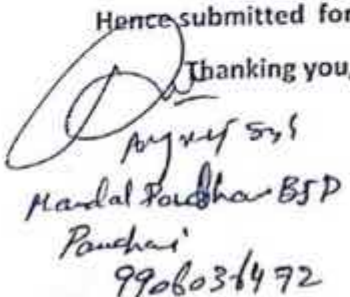 Hence submitted for
Thanking you,
Mandal Pardhan BJP
9906036472